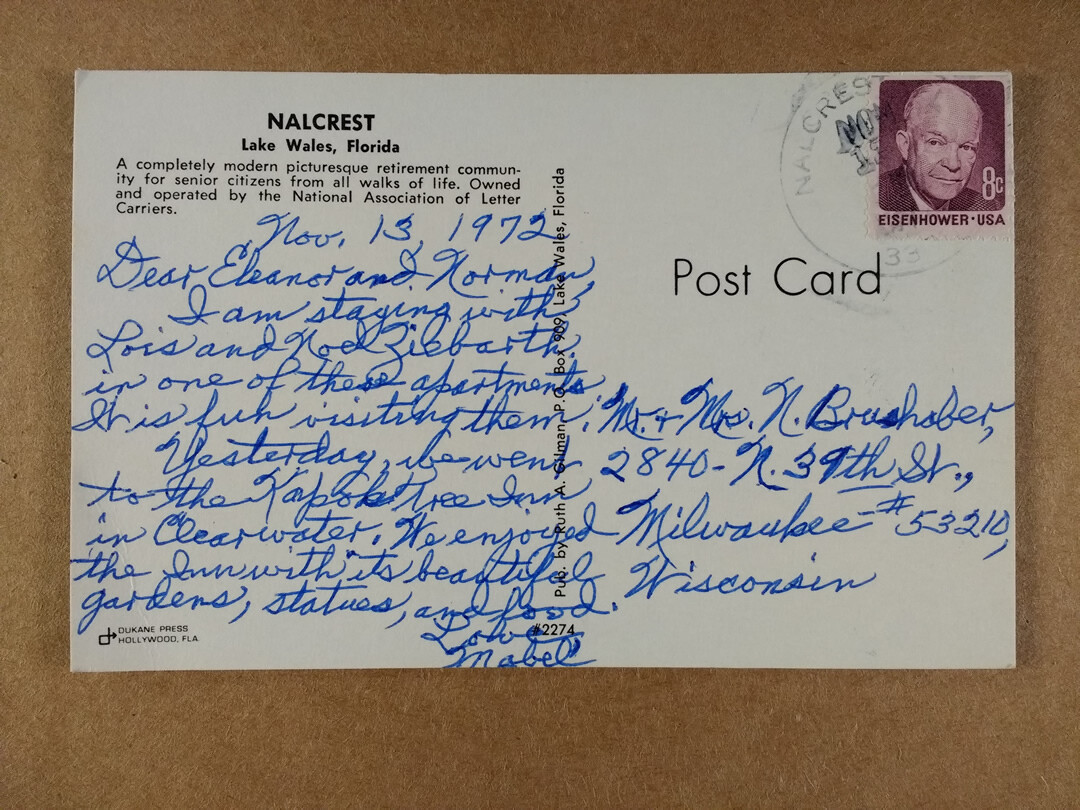 NALCREST
Lake Wales, Florida
A completely modern picturesque retirement commun-
ity for senior citizens from all walks of life. Owned
and operated by the National Association of Letter
Carriers.
Nov. 13, 1972
Dear Eleanor and Norman,
I am staying with
Lois and Noel Ziebarth
in one of these apartments.
It is fun visiting them.
Yesterday, we went
to the Kapok Tree Inn
in Clearwater. We enjoyed
the Inn with its beautiful
gardens, statues, and food.
Love
Mabel
DUKANE PRESS
HOLLYWOOD, FLA.
#2274
Pub. by Ruth A. Gilman, P.O. Box 909, Lake Wales, Florida
NALCREST
NOV
33
8c
EISENHOWER·USA
Post Card
Mr. + Mrs. N. Brushaber,
2840-N. 39th St.,
Milwaukee-#53210,
Wisconsin